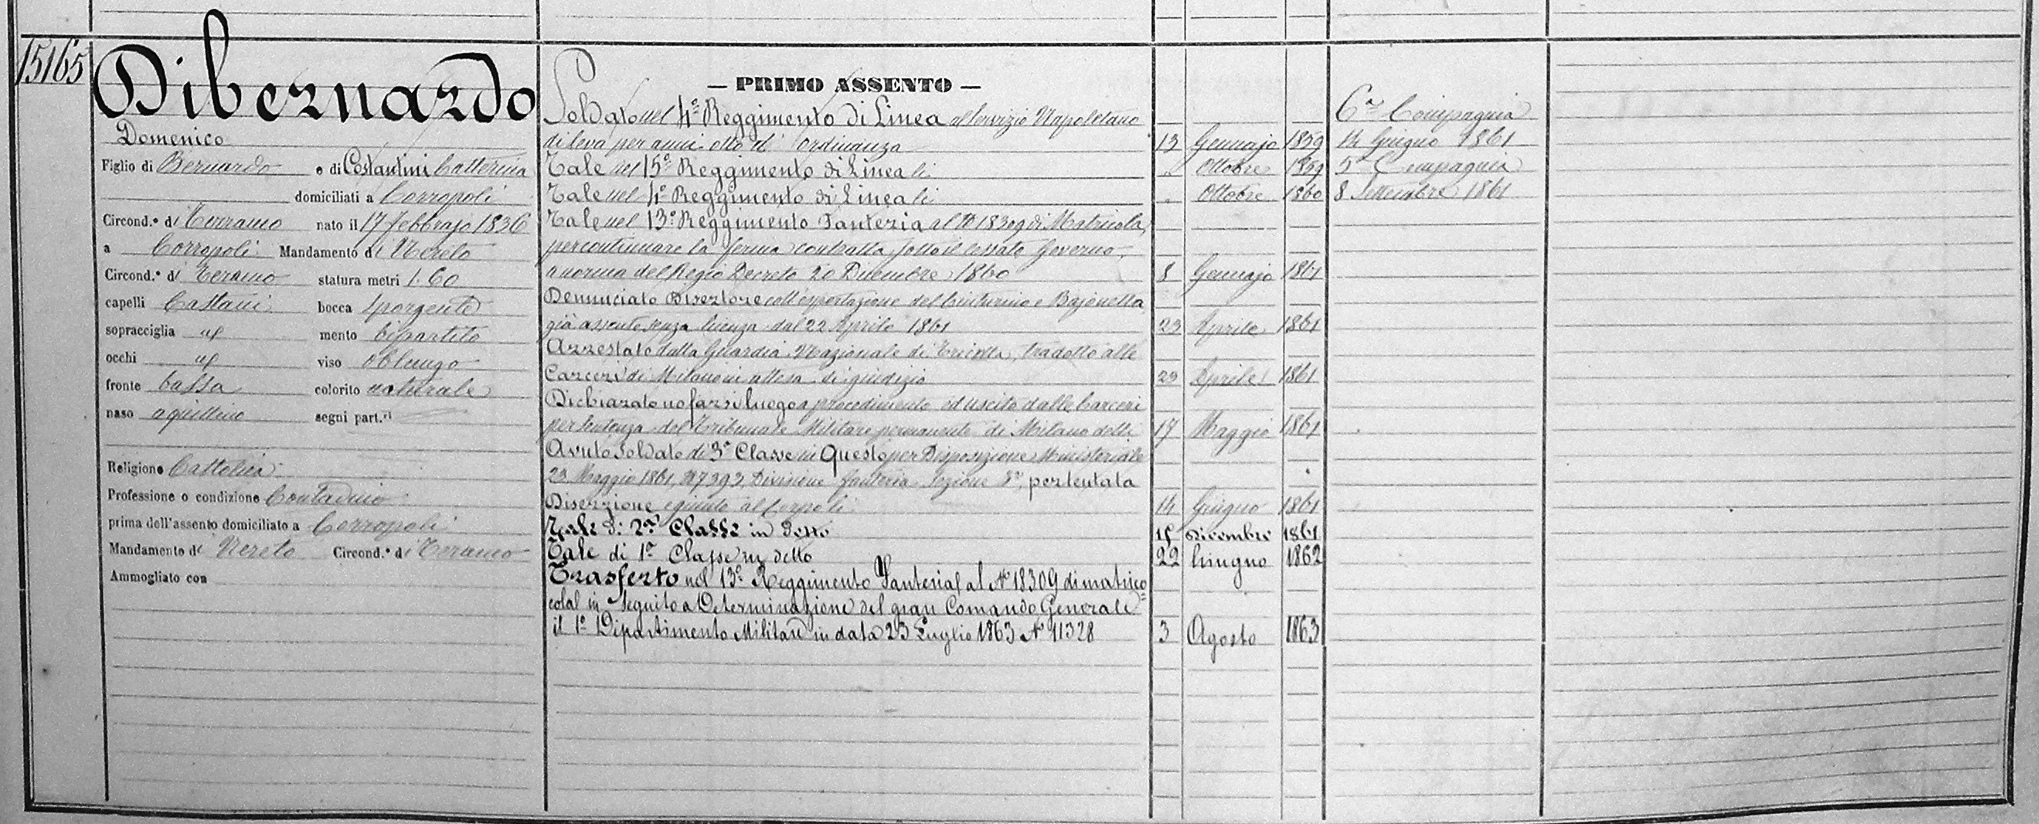 15165
Dibernardo
Domenico
Figlio di Bernardo e di Costantini Catterina
domiciliati a Corropoli
Circond.º di Terramo nato il 17 febbrajo 1836
a Corropoli Mandamento di Nereto
Circond.º di Teramo statura metri 1.60
capelli Castani bocca sporgente
sopracciglia id mento bipartito
occhi id viso oblungo
fronte bassa colorito naturale
naso aquillino segni part.ri
Religione Cattolica
Professione o condizione Contadino
prima dell'assento domiciliato a Corropoli
Mandamento di Nereto Circond.º di Teramo
Ammogliato con
— PRIMO ASSENTO —
Soldato nel 4º Reggimento di Linea al Servizio Napoletano
di leva per anni otto d'ordinanza 13 Gennajo 1859
Tale nel 15º Reggimento di Linea li Ottobre 1859
Tale nel 4º Reggimento di Linea li Ottobre 1860
Tale nel 13º Reggimento Fanteria al Nº 18309 di Matricola,
per continuare la ferma contratta sotto il cessato Governo,
a norma del Regio Decreto 20 Dicembre 1860 8 Gennajo 1861
Denunciato Disertore coll'esportazione del Cinturino e Bajonetta
già assente senza licenza dal 22 Aprile 1861 23 Aprile 1861
Arrestato dalla Guardia Nazionale di, tradotto alle
Carceri di Milano in attesa di giudizio 29 Aprile 1861
Dichiarato non farsi luogo a procedimento ed uscito dalle Carceri
per sentenza del Tribunale Militare permanente di Milano delli 17 Maggio 1861
Avuto soldato di 3ª Classe in Questo per Disposizione Ministeriale
23 Maggio 1861, Nº 7392, Divisione fanteria Sezione, per tentata
Diserzione e giunto al Corpo li 14 Giugno 1861
Tale di 2ª Classe in detto 15 Dicembre 1861
Tale di 1ª Classe in detto 22 Giugno 1862
Trasferto nel 13º Reggimento Fanteria al Nº 18309 di matrico
cola in seguito a Determinazione del gran Comando Generale
il 1º Dipartimento Militare in data 23 Luglio 1863 Nº 11328 3 Agosto 1863
6ª Compagnia
14 Giugno 1861
5ª Compagnia
8 Settembre 1861